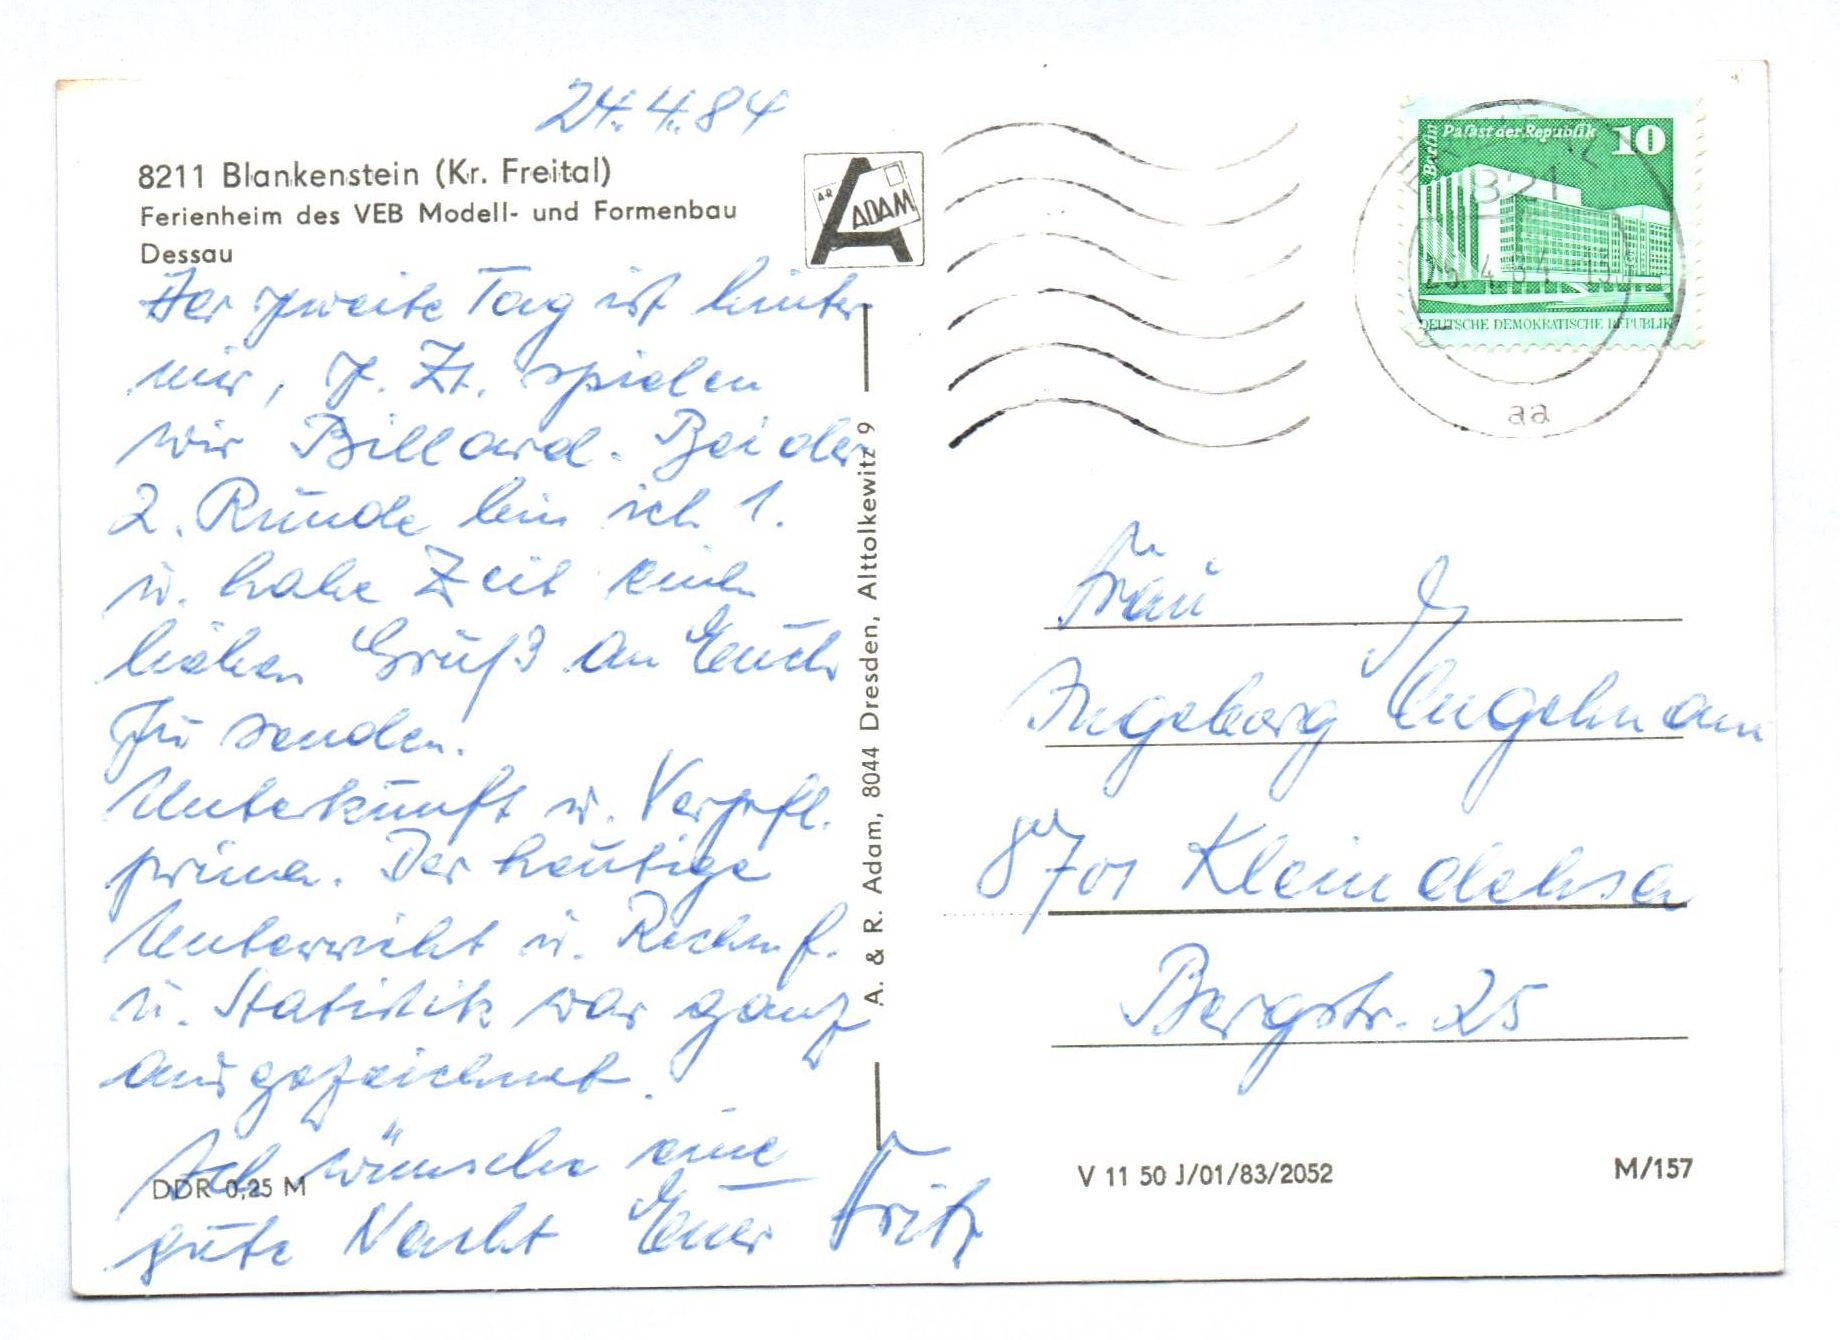 24.4.84
8211 Blankenstein (Kr. Freital)
Ferienheim des VEB Modell- und Formenbau
Dessau
Der zweite Tag ist hinter
mir, z. Zt. spielen
wir Billard. Bei der
2. Runde bin ich 1.
u. habe Zeit einen
lieben Gruß an Euch
zu senden.
Unterkunft u. Verpfl.
prima. Der heutige
Unterricht ü. Rechnf.
u. Statistik war ganz
ausgezeichnet.
Ich wünsche eine
gute Nacht Euer Fritz
DDR 0,25 M
A. & R. Adam, 8044 Dresden, Alttolkewitz 9
A-R
ADAM
Berlin
Palast der Republik
10
DEUTSCHE DEMOKRATISCHE REPUBLIK
821
25.4.84
aa
Frau
Ingeborg Engelmann
8701 Kleindehsa
Bergstr. 25
V 11 50 J/01/83/2052
M/157